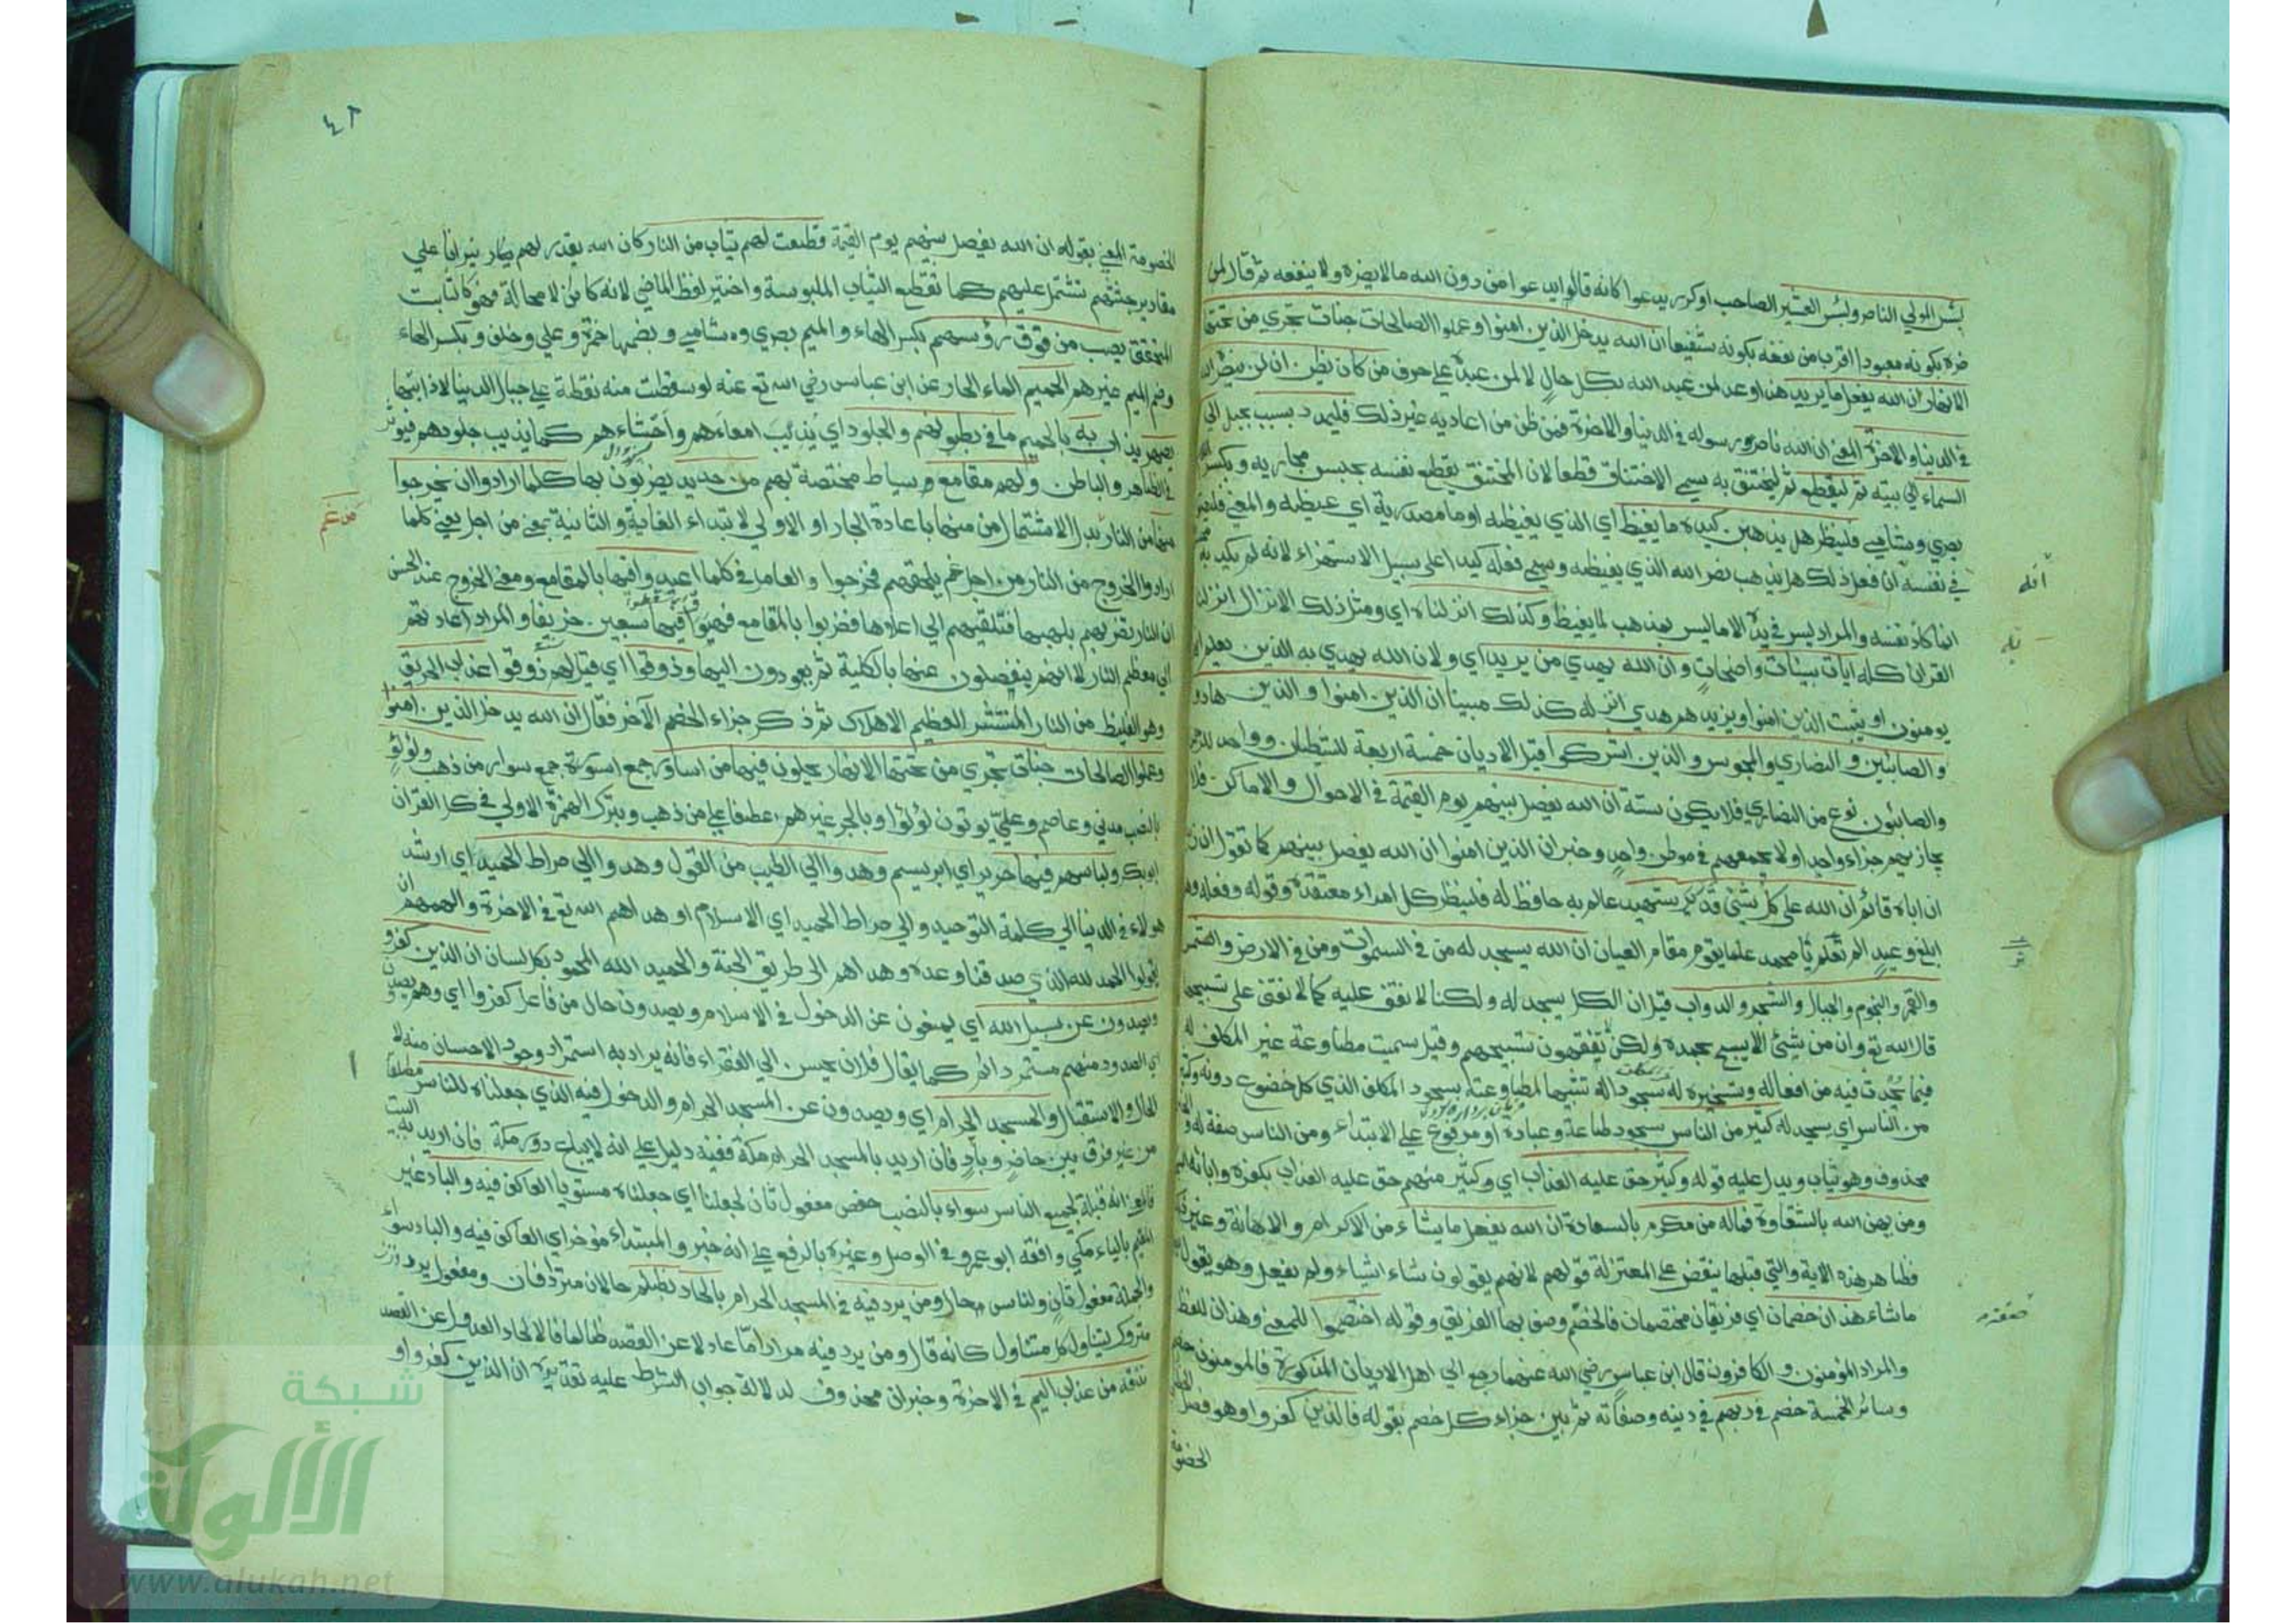 لبئس المولي الناصر ولبئس العشير الصاحب او كرر يدعوا كانه قال يدعوا من دون الله مالا يضره ولا ينفعه ثم قال لمن
ضره بكونه معبودا اقرب من نفعه بكونه شفيعا ان الله يدخل الذين امنوا وعملوا الصالحات جنات تجري من تحتها
الانهار ان الله يفعل ما يريد هذا وعد لمن عبد الله بكل حال لا لمن عبد علي حرف من كان يظن ان لن ينصره الله
في الدنيا والاخرة المعني ان الله ناصر رسوله في الدنيا والاخرة فمن ظن من اعاديه غير ذلك فليمدد بسبب بحبل الي
السماء الي بيته ثم ليقطع ثم ليختنق به سمي الاختناق قطعا لان المختنق يقطع نفسه بحبس مجاريه وبكسر
بصري وشامي فلينظر هل يذهبن كيده ما يغيظ اي الذي يغيظه او ما مصدرية اي غيظه والمعني فليصور
في نفسه ان فعل ذلك هل يذهب نصر الله الذي يغيظه وسمي فعله كيدا علي سبيل الاستهزاء لانه لم يكد به
انما كاد نفسه والمراد ليس في يده الا ما ليس بمذهب لما يغيظ وكذلك انزلناه اي ومثل ذلك الانزال انزلنا
القران كله ايات بينات واضحات وان الله يهدي من يريد اي ولان الله يهدي به الذين يعلم انهم
يومنون او يثبت الذين امنوا ويزيدهم هدي انزله كذلك مبينا ان الذين امنوا والذين هادوا
والصابئين والنصاري والمجوس والذين اشركوا قيل الاديان خمسة اربعة للشيطان وواحد للرحمن
والصابئون نوع من النصاري فلا يكون ستة ان الله يفصل بينهم يوم القيمة في الاحوال والاماكن فلا
يجازيهم جزاء واحدا ولا يجمعهم في موطن واحد وخبر ان الذين امنوا ان الله يفصل بينهم كما تقول ان زيدا
ان اباه قائم ان الله علي كل شئ شهيد عالم به حافظ له فلينظر كل امراء معتقده وقوله وفعله وهو
ابلغ وعيد الم تر الم تعلم يا محمد علما يقوم مقام العيان ان الله يسجد له من في السموات ومن في الارض والشمس
والقمر والنجوم والجبال والشجر والدواب قيل ان الكل يسجد له ولكنا لا نقف عليه كما لا نقف علي تسبيحها
قال الله تع وان من شئ الا يسبح بحمده ولكن لا تفقهون تسبيحهم وقيل سميت مطاوعة غير المكلف له
فيما يحدث فيه من افعاله وتسخيره له سجودا له تشبيها لمطاوعته بسجود المكلف الذي كل خضوع دونه وكثير
من الناس اي يسجد له كثير من الناس سجود طاعة وعبادة او مرفوع علي الابتداء ومن الناس صفة له والخبر
محذوف وهو مثاب ويدل عليه قوله وكثير حق عليه العذاب اي وكثير منهم حق عليه العذاب بكفره وابائه السجود
ومن يهن الله بالشقاوة فما له من مكرم بالسعادة ان الله يفعل ما يشاء من الاكرام والاهانة وغير ذلك
فظاهر هذه الاية والتي قبلها ينقض علي المعتزلة قولهم لانهم يقولون شاء اشياء ولم يفعل وهو يقول
ما يشاء هذان خصمان اي فريقان مختصمان فالخصم وصف بها الفريق وقوله اختصموا للمعني وهذان للفظ
والمراد المؤمنون والكافرون قال ابن عباس رضي الله عنهما رجع الي اهل الاديان المذكورة فالمومنون خصم
وسائر الخمسة خصم في ربهم في دينه وصفاته ثم بين جزاء كل خصم بقوله فالذين كفروا وهو فصل
الخصومة
٤٨
الخصومة المعني بقوله ان الله يفصل بينهم يوم القيمة قطعت لهم ثياب من النار كان الله يقدر لهم نيرانا علي
مقادير جثثهم تشتمل عليهم كما تقطع الثياب الملبوسة واختير لفظ الماضي لانه كائن لا محالة فهو كالثابت
المتحقق يصب من فوق رؤسهم بكسر الهاء والميم بصري وبضمهما حمزة وعلي وخلف وبكسر الهاء
وضم الميم غيرهم الحميم الماء الحار عن ابن عباس رضي الله تع عنه لو سقطت منه نقطة علي جبال الدنيا لاذابتها
يصهر يذاب به بالحميم ما في بطونهم والجلود اي يذيب امعاءهم واحشاءهم كما يذيب جلودهم فيوثر
في الظاهر والباطن ولهم مقامع سياط مختصة بهم من حديد يضربون بها كلما ارادوا ان يخرجوا
منها من النار بدل الاشتمال من منها باعادة الجار او الاولي لابتداء الغاية والثانية بمعني من اجل يعني كلما
ارادوا الخروج من النار من اجل غم يلحقهم فخرجوا والعامل في كلما اعيدوا فيها بالمقامع ومعني الخروج عند الحسن
ان النار تضربهم بلهبها فتلقيهم الي اعلاها فضربوا بالمقامع فهووا فيها سبعين خريفا والمراد اعادتهم
الي معظم النار لا انهم ينفصلون عنها بالكلية ثم يعودون اليها وذوقوا اي قيل لهم ذوقوا عذاب الحريق
وهو الغليظ من النار المنتشر العظيم الاهلاك ثم ذكر جزاء الخصم الآخر فقال ان الله يدخل الذين امنوا
وعملوا الصالحات جنات تجري من تحتها الانهار يحلون فيها من اساور جمع اسورة جمع سوار من ذهب ولؤلؤ
بالنصب مدني وعاصم وعلي يوتون لؤلؤا وبالجر غيرهم عطفا علي من ذهب وبترك الهمزة الاولي في كل القران
ابوبكر ولباسهم فيها حرير اي ابريسم وهدوا الي الطيب من القول وهدوا الي صراط الحميد اي ارشد
هولاء في الدنيا الي كلمة التوحيد والي صراط الحميد اي الاسلام او هداهم الله تع في الاخرة والهمهم ان
يقولوا الحمد لله الذي صدقنا وعده وهداهم الي طريق الجنة والحميد الله المحمود بكل لسان ان الذين كفروا
ويصدون عن سبيل الله اي يمنعون عن الدخول في الاسلام ويصدون حال من فاعل كفروا اي وهم يصدون
اي الصدود منهم مستمر دائم كما يقال فلان يحسن الي الفقراء فانه يراد به استمرار وجود الاحسان منه
الحال والاستقبال والمسجد الحرام اي ويصدون عن المسجد الحرام والدخول فيه الذي جعلناه للناس مطلقا
من غير فرق بين حاضر وباد فان اريد بالمسجد الحرام مكة ففيه دليل علي انه لا يباع دور مكة فان اريد به البيت
فالمعني انه قبلة لجميع الناس سواء بالنصب حفص مفعول ثان لجعلنا اي جعلناه مستويا العاكف فيه والباد غير
المقيم بالياء مكي وافقه ابو عمرو في الوصل وغيره بالرفع علي انه خبر والمبتداء مؤخر اي العاكف فيه والباد سواء
والجملة مفعول ثان وللناس حال ومن يرد فيه في المسجد الحرام بالحاد بظلم حالان مترادفان ومفعول يرد
متروك ليتناول كل متناول كانه قال ومن يرد فيه مرادا ما عادلا عن القصد ظالما فالالحاد العدول عن القصد
نذقه من عذاب اليم في الاخرة وخبر ان محذوف لدلالة جواب الشرط عليه تقديره ان الذين كفروا و
شبكة
الألوكة
www.alukah.net